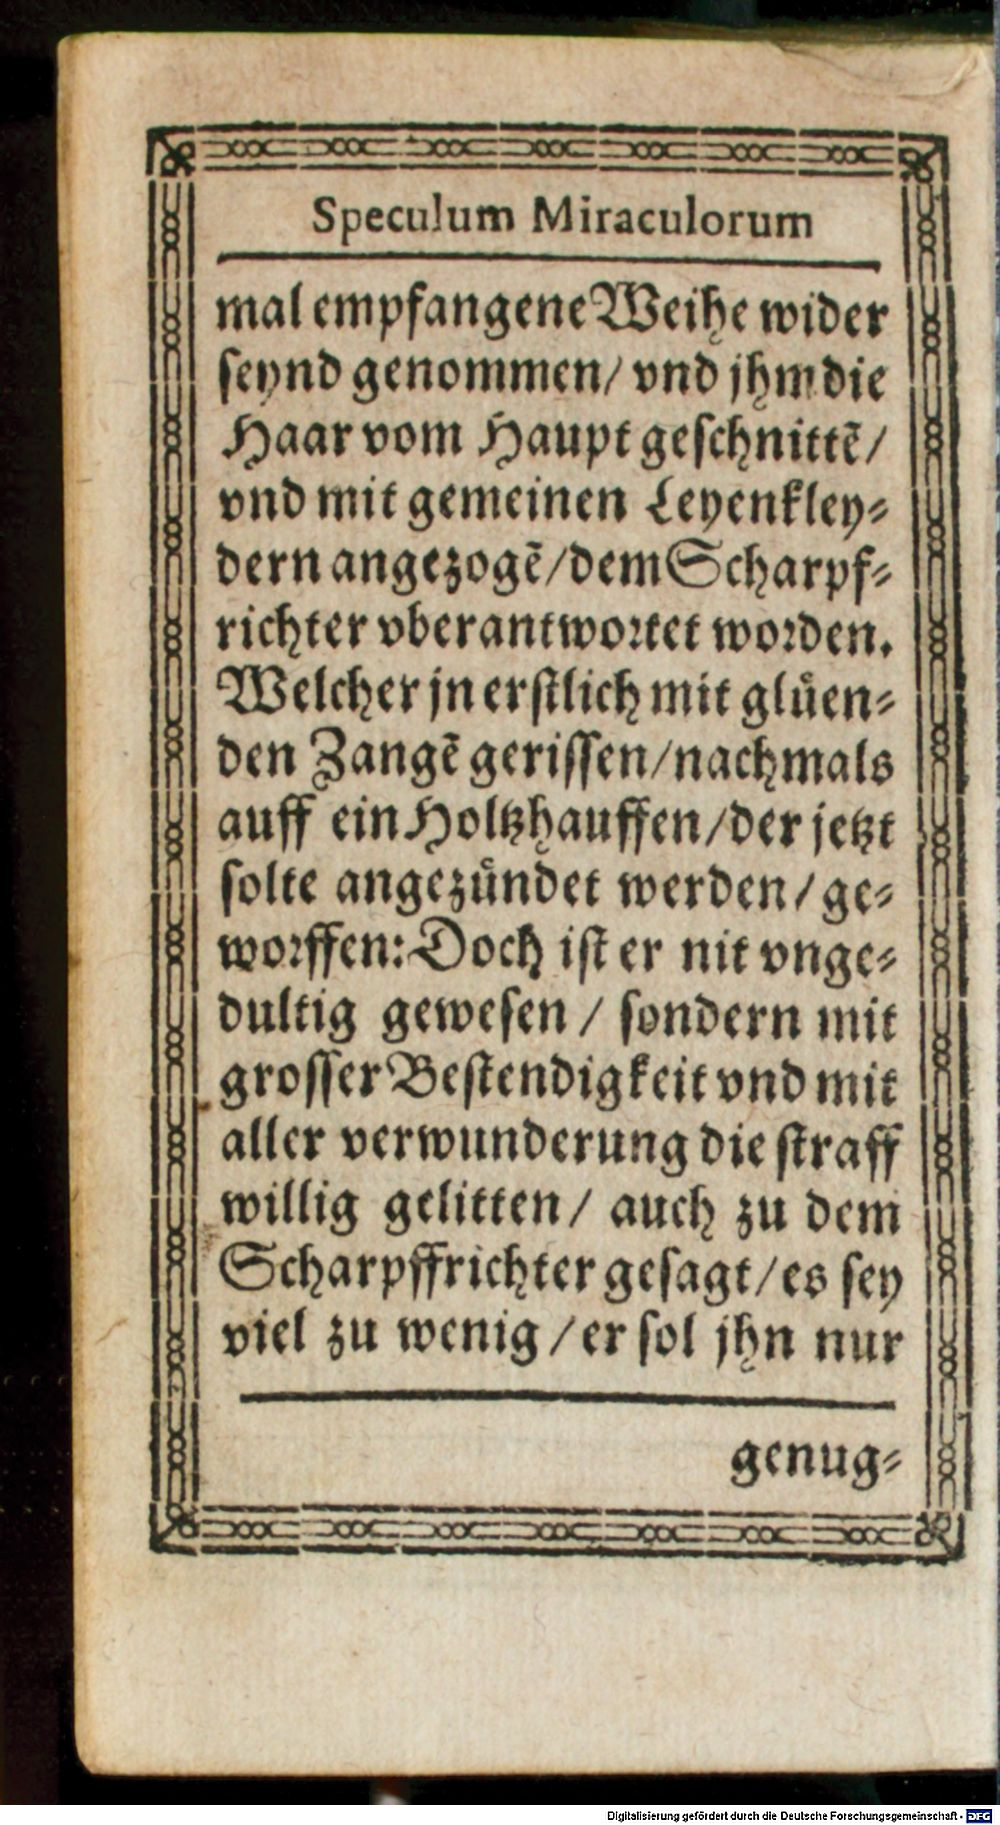 Speculum Miraculorum
mal empfangene Weihe wider
seynd genommen/ vnd jhm die
Haar vom Haupt geschnittẽ/
vnd mit gemeinen Leyenkley-
dern angezogẽ/dem Scharpf-
richter vberantwortet worden.
Welcher jn erstlich mit gluͤen-
den Zangẽ gerissen/nachmals
auff ein Holtzhauffen/der jetzt
solte angezuͤndet werden/ ge-
worffen: Doch ist er nit vnge-
dultig gewesen / sondern mit
grosser Bestendigkeit vnd mit
aller verwunderung die straff
willig gelitten/ auch zu dem
Scharpffrichter gesagt/es sey
viel zu wenig /er sol jhn nur
genug-
Digitalisierung gefördert durch die Deutsche Forschungsgemeinschaft - DFG